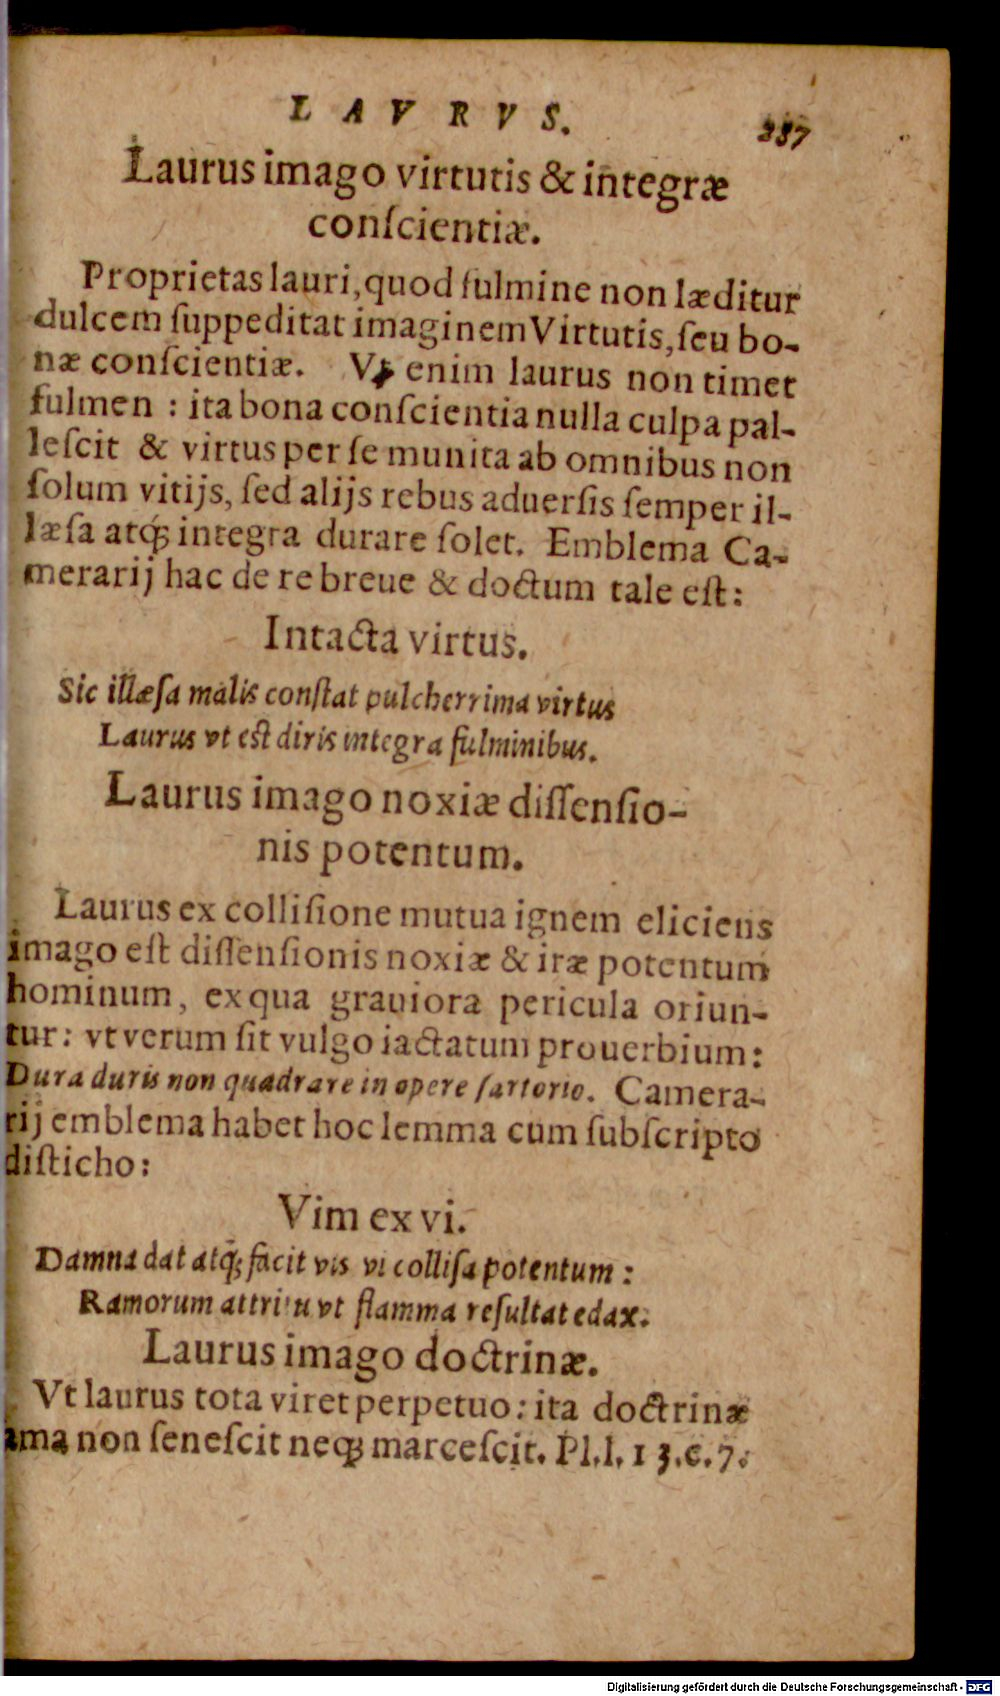 LAVRVS. 287
Laurus imago virtutis & integræ
conſcientiæ.
Proprietas lauri, quod fulmine non læditur
dulcem ſuppeditat imaginem Virtutis, ſeu bo-
næ conſcientiæ. Vt enim laurus non timet
fulmen : ita bona conſcientia nulla culpa pal-
leſcit & virtus per ſe munita ab omnibus non
ſolum vitijs, ſed alijs rebus aduerſis ſemper il-
læſa atq; integra durare ſolet. Emblema Ca-
merarij hac de re breue & doctum tale eſt:
Intacta virtus.
Sic illæſa malis conſtat pulcherrima virtus
Laurus vt eſt diris integra fulminibus.
Laurus imago noxiæ diſſenſio-
nis potentum.
Laurus ex colliſione mutua ignem eliciens
imago eſt diſſenſionis noxiæ & iræ potentum
hominum, ex qua grauiora pericula oriun-
tur: vt verum ſit vulgo iactatum prouerbium:
Dura duris non quadrare in opere ſartorio. Camera-
rij emblema habet hoc lemma cum ſubſcripto
diſticho:
Vim ex vi.
Damna dat atq; facit vis vi colliſa potentum :
Ramorum attritu vt flamma reſultat edax.
Laurus imago doctrinæ.
Vt laurus tota viret perpetuo: ita doctrinæ
ama non ſeneſcit neq; marceſcit. Pl. l. 13. c. 7.
Digitalisierung gefördert durch die Deutsche Forschungsgemeinschaft - DFG